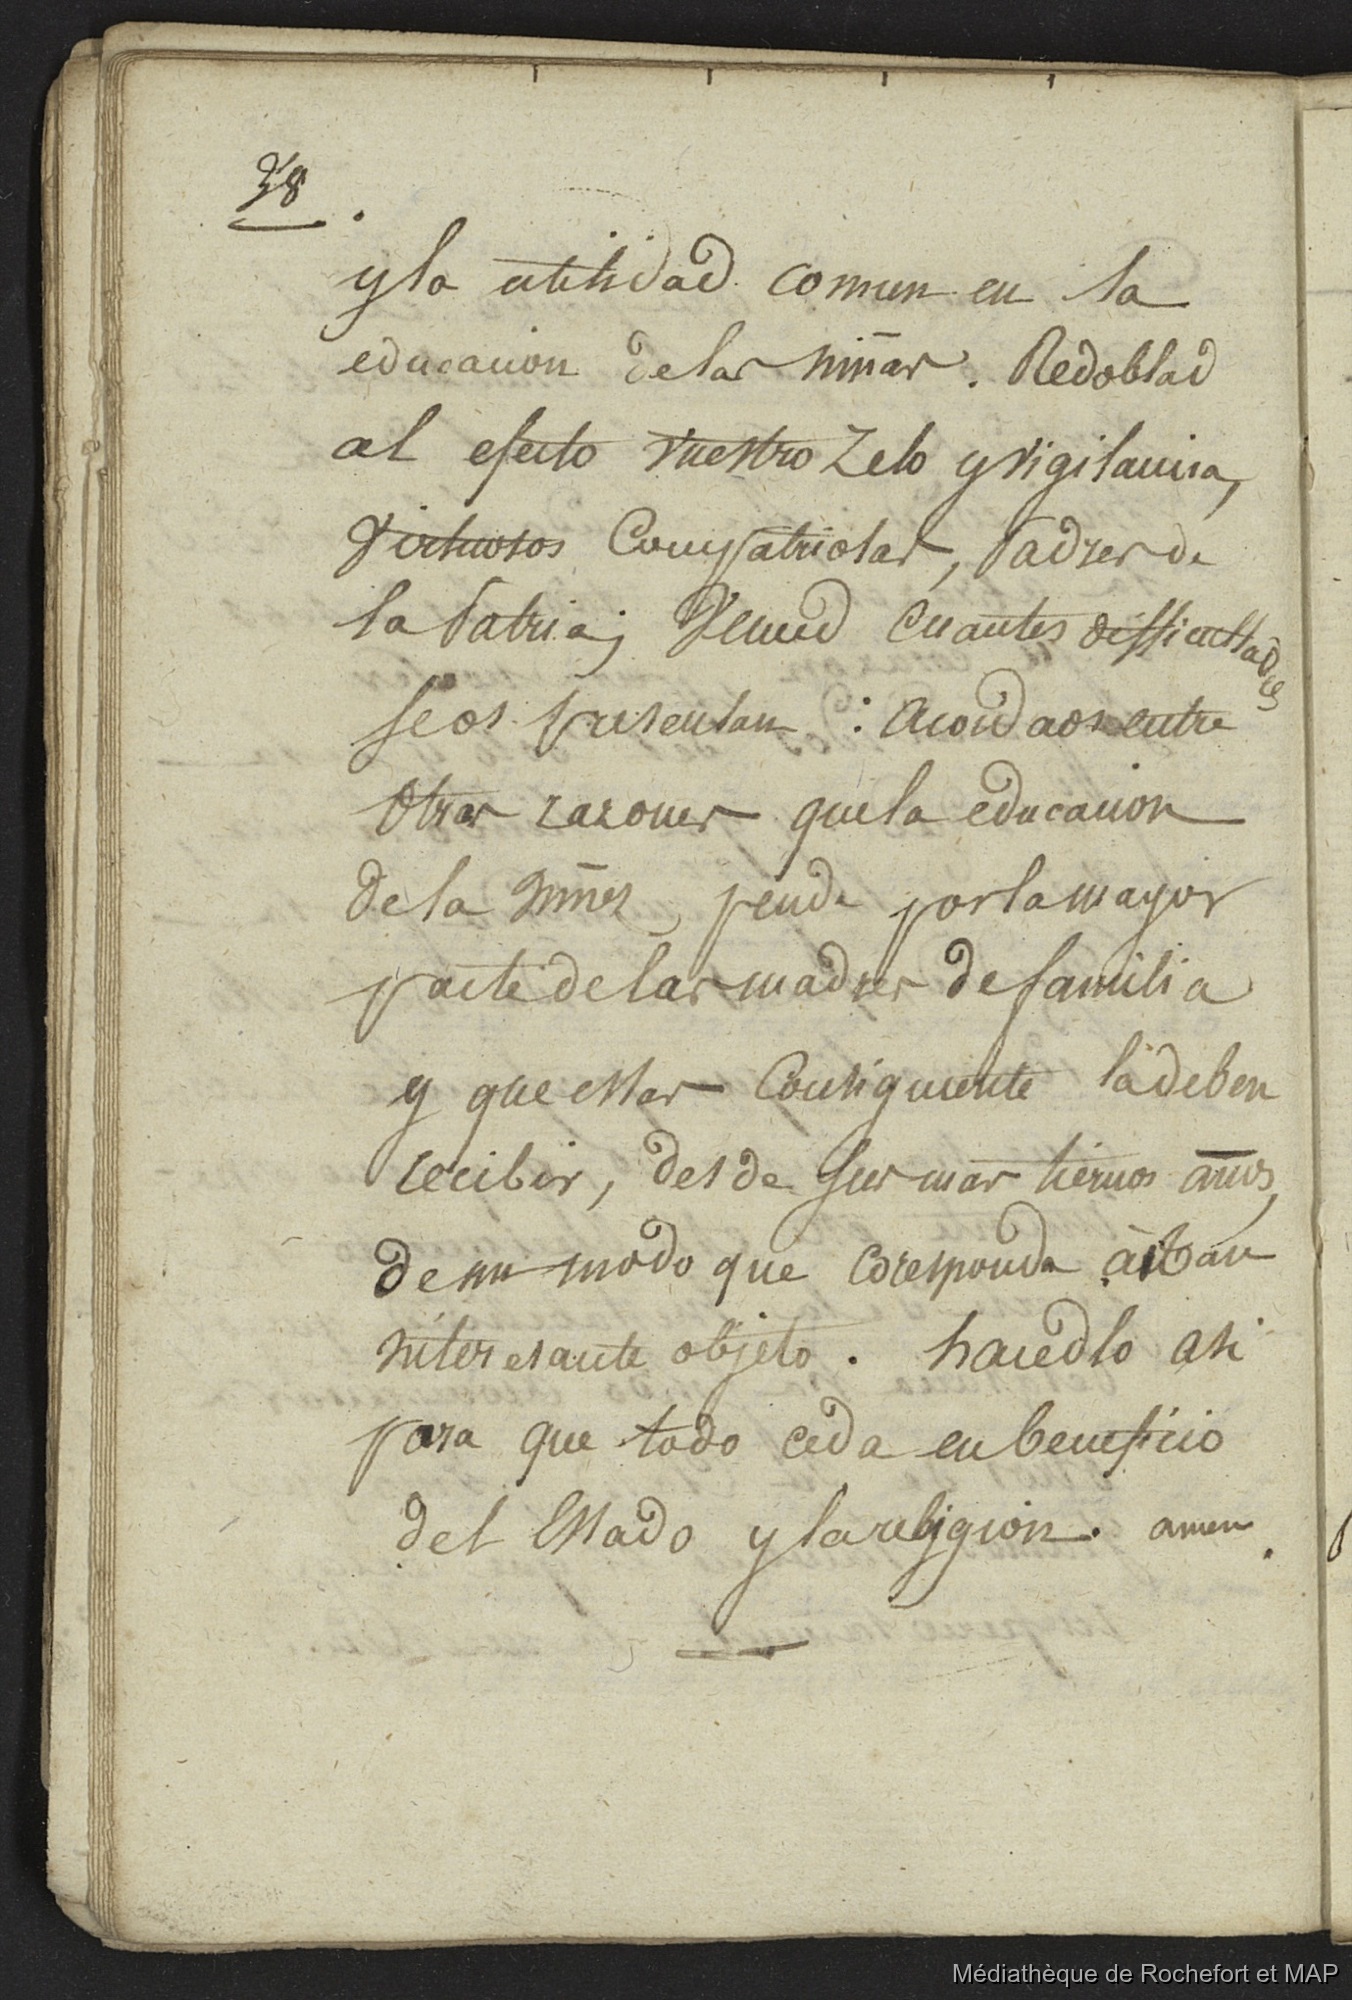 38.
y la utilidad comun en la
educacion de las niñas. Redoblad
al efecto vuestro Zelo y vigilancia,
Virtuosos Compatriotas, Padres de
la Patria; Venced cuantes difficultades
se os presentan: Acordaos entre
Otras razones que la educacion
de la Niñez pende por la mayor
parte de las madres de familia
y que estas Consiguiente la deben
recibir, desde sus mas tiernos años,
de un modo que coresponda à tan
interesante objeto. hacedlo asi
para que todo ceda en beneficio
del Estado y la religion. amen.
Médiathèque de Rochefort et MAP